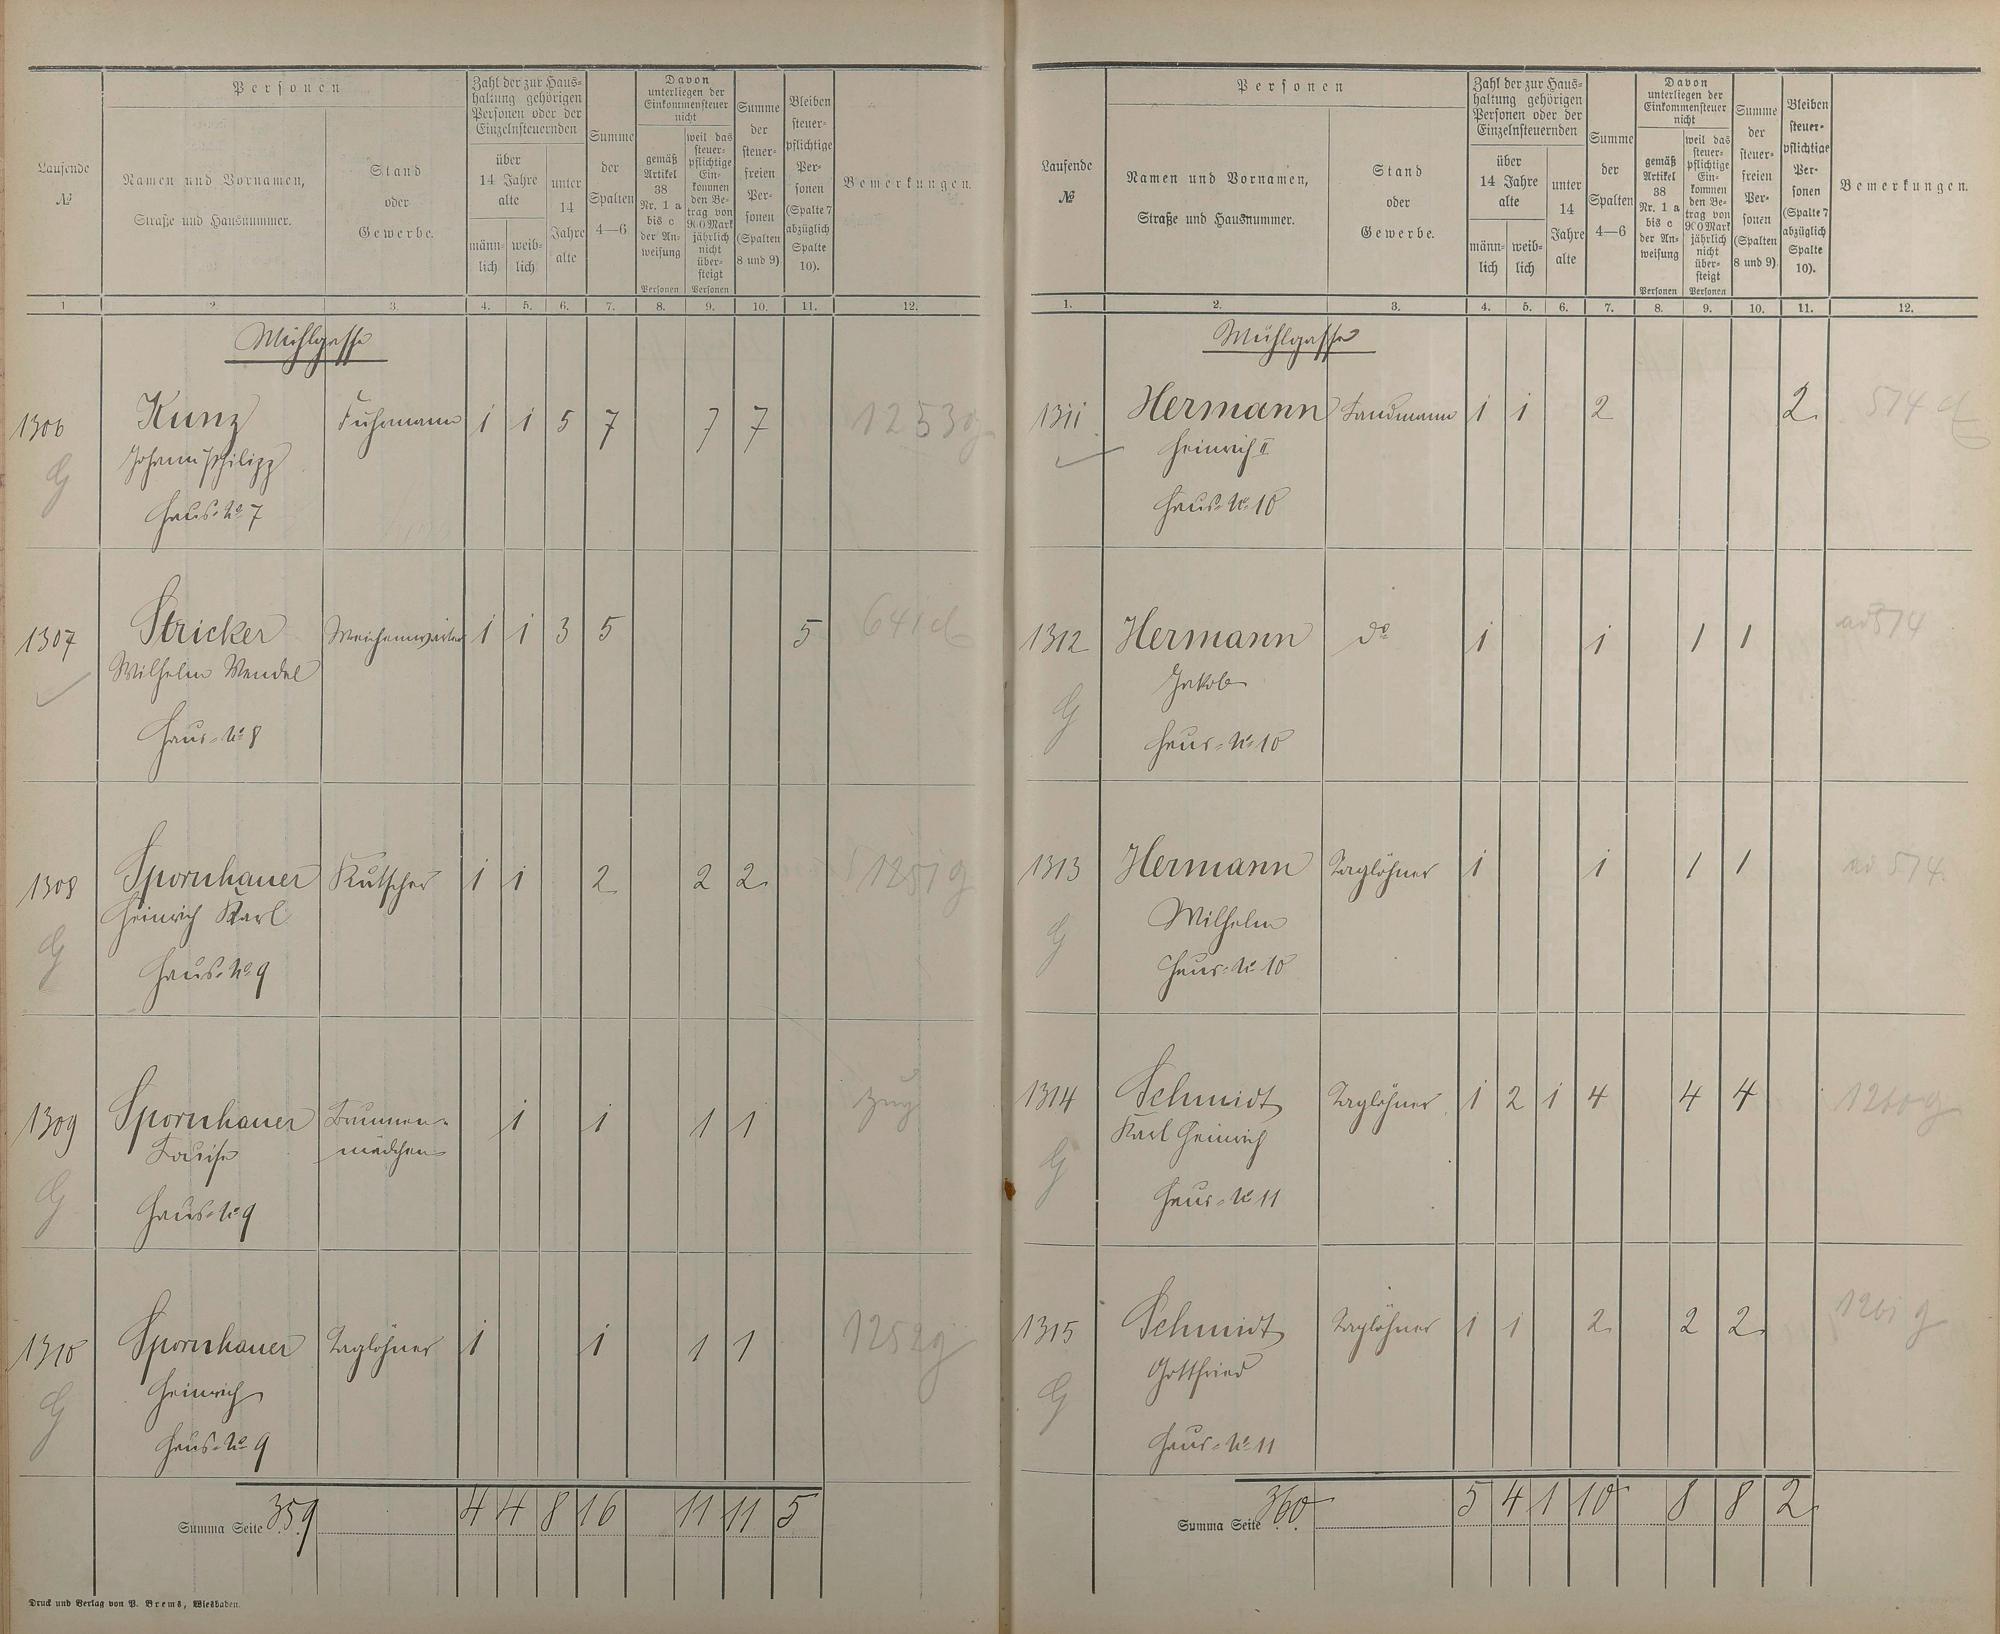 Personen
Zahl der zur Haus-
haltung gehörigen
Personen oder der
Einzelnsteuernden
Davon
unterliegen der
Einkommensteuer
nicht
Laufende
№
Namen und Vornamen,
Straße und Hausnummer.
Stand
oder
Gewerbe.
über
14 Jahre
alte
männ-
lich
weib-
lich
unter
14
Jahre
alte
Summe
der
Spalten
4—6
gemäß
Artikel
38
Nr. 1 a
bis c
der An-
weisung
Personen
weil das
steuer-
pflichtige
Ein-
kommen
den Be-
trag von
900 Mark
jährlich
nicht
über-
steigt
Personen
Summe
der
steuer-
freien
Per-
sonen
(Spalten
8 und 9)
Bleiben
steuer-
pflichtige
Per-
sonen
(Spalte 7
abzüglich
Spalte
10).
Bemerkungen.
1 2. 3. 4. 5. 6. 7. 8. 9. 10. 11. 12.
Mühlgasse
1306 Kunz Fuhrmann 1 1 5 7 7 7 1253 g
G Johann Philipp
Haus-No 7
1307 Stricker Weichenwärter 1 1 3 5 5 641 d
Wilhelm Wendel
Haus-No 8
1308 Spornhauer Kutscher 1 1 2 2 2 1251 g
G Heinrich Karl
Haus-No 9
1309 Spornhauer Brunnen- 1 1 1 1 zug
G Louise mädchen
Haus-No 9
1310 Spornhauer Taglöhner 1 1 1 1 1252 g
G Heinrich
Haus-No 9
Summa Seite 359 4 4 8 16 11 11 5
Druck und Verlag von P. Brems, Wiesbaden.
Personen
Zahl der zur Haus-
haltung gehörigen
Personen oder der
Einzelnsteuernden
Davon
unterliegen der
Einkommensteuer
nicht
Laufende
№
Namen und Vornamen,
Straße und Hausnummer.
Stand
oder
Gewerbe.
über
14 Jahre
alte
männ-
lich
weib-
lich
unter
14
Jahre
alte
Summe
der
Spalten
4—6
gemäß
Artikel
38
Nr. 1 a
bis c
der An-
weisung
Personen
weil das
steuer-
pflichtige
Ein-
kommen
den Be-
trag von
900 Mark
jährlich
nicht
über-
steigt
Personen
Summe
der
steuer-
freien
Per-
sonen
(Spalten
8 und 9)
Bleiben
steuer-
pflichtige
Per-
sonen
(Spalte 7
abzüglich
Spalte
10).
Bemerkungen.
1. 2. 3. 4. 5. 6. 7. 8. 9. 10. 11. 12.
Mühlgasse
1311 Hermann Landmann 1 1 2 2 574 d
Heinrich II
Haus-No 10
1312 Hermann do 1 1 1 1 ad 574
G Jakob
Haus-No 10
1313 Hermann Taglöhner 1 1 1 1 ad 574.
G Wilhelm
Haus-No 10
1314 Schmidt Taglöhner 1 2 1 4 4 4 1260 g
G Karl Heinrich
Haus-No 11
1315 Schmidt Taglöhner 1 1 2 2 2 1261 g
G Gottfried
Haus-No 11
Summa Seite 360 5 4 1 10 8 8 2